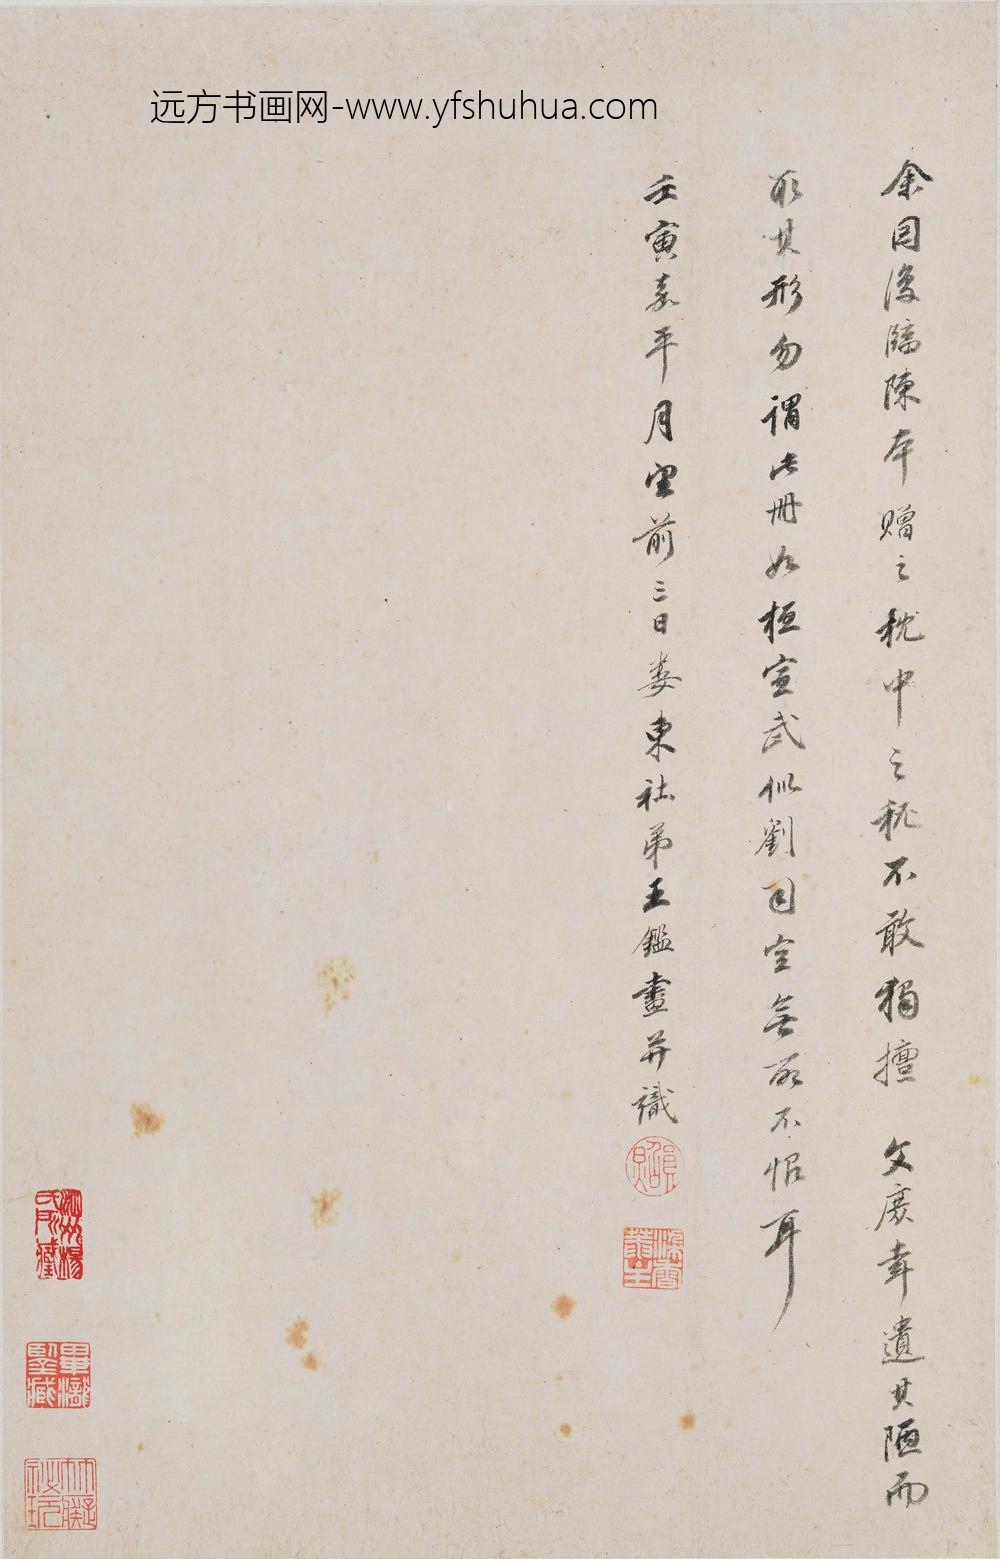 远方书画网-www.yfshuhua.com
余因復臨陳本贈之枕中之秘不敢獨擅 文庶幸遺其陋而
取其形勿謂此冊如桓宣武似劉司空無所不恨耳
壬寅嘉平月望前三日婁東社弟王鑑畫并識
員照
染香菴主
畢瀧鑒藏